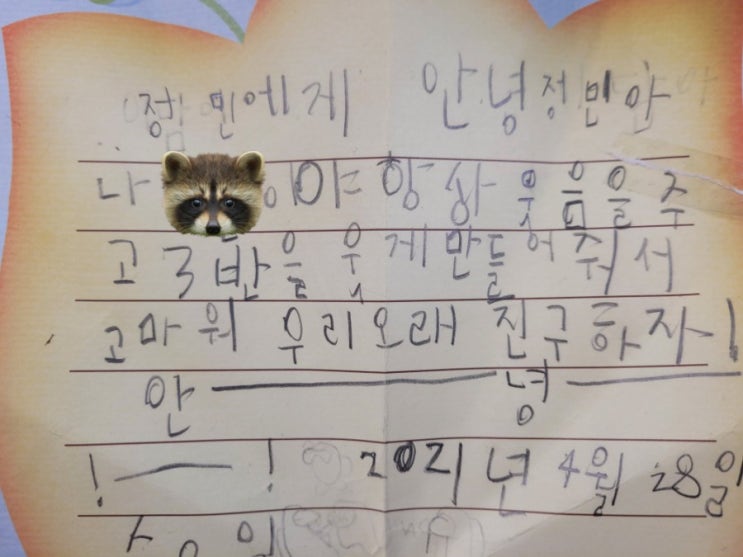 정민에게 안녕 정민아
나 야 항상 웃음을 주
고 3반을 웃게 만들어 줘서
고마워 우리 오래 친구하자!
안 ― 녕 ―
! ― ! 2021년 4월 28일